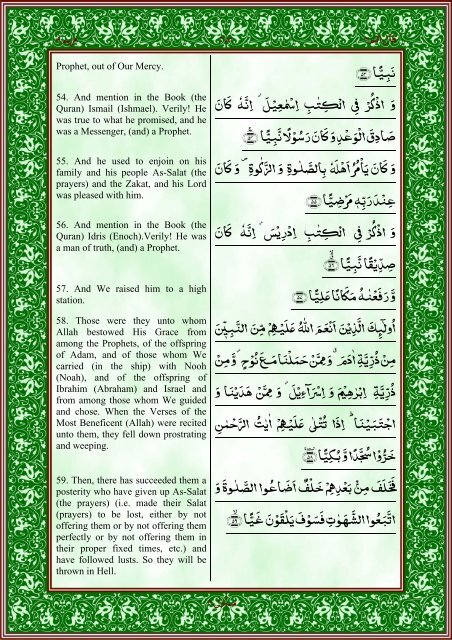 Prophet, out of Our Mercy.
54. And mention in the Book (the
Quran) Ismail (Ishmael). Verily! He
was true to what he promised, and he
was a Messenger, (and) a Prophet.
55. And he used to enjoin on his
family and his people As-Salat (the
prayers) and the Zakat, and his Lord
was pleased with him.
56. And mention in the Book (the
Quran) Idris (Enoch).Verily! He was
a man of truth, (and) a Prophet.
57. And We raised him to a high
station.
58. Those were they unto whom
Allah bestowed His Grace from
among the Prophets, of the offspring
of Adam, and of those whom We
carried (in the ship) with Nooh
(Noah), and of the offspring of
Ibrahim (Abraham) and Israel and
from among those whom We guided
and chose. When the Verses of the
Most Beneficent (Allah) were recited
unto them, they fell down prostrating
and weeping.
59. Then, there has succeeded them a
posterity who have given up As-Salat
(the prayers) (i.e. made their Salat
(prayers) to be lost, either by not
offering them or by not offering them
perfectly or by not offering them in
their proper fixed times, etc.) and
have followed lusts. So they will be
thrown in Hell.
نَبِيًّا ﴿٥٣﴾
وَ اذْكُرْ فِي الْكِتٰبِ اِسْمٰعِيْلَ ۫ اِنَّهٗ كَانَ
صَادِقَ الْوَعْدِ وَ كَانَ رَسُوْلًا نَّبِيًّا ﴿٥٤﴾
وَ كَانَ يَاْمُرُ اَهْلَهٗ بِالصَّلٰوةِ وَ الزَّكٰوةِ ۪ وَ كَانَ
عِنْدَ رَبِّهٖ مَرْضِيًّا ﴿٥٥﴾
وَ اذْكُرْ فِي الْكِتٰبِ اِدْرِيْسَ ۫ اِنَّهٗ كَانَ
صِدِّيْقًا نَّبِيًّا ﴿٥٦﴾
وَّ رَفَعْنٰهُ مَكَانًا عَلِيًّا ﴿٥٧﴾
اُولٰٓئِكَ الَّذِيْنَ اَنْعَمَ اللّٰهُ عَلَيْهِمْ مِّنَ النَّبِيّٖنَ
مِنْ ذُرِّيَّةِ اٰدَمَ ۗ وَ مِمَّنْ حَمَلْنَا مَعَ نُوْحٍ ۫ وَّ مِنْ
ذُرِّيَّةِ اِبْرٰهِيْمَ وَ اِسْرَآءِيْلَ ۫ وَ مِمَّنْ هَدَيْنَا وَ
اجْتَبَيْنَا ؕ اِذَا تُتْلٰى عَلَيْهِمْ اٰيٰتُ الرَّحْمٰنِ
خَرُّوْا سُجَّدًا وَّ بُكِيًّا ﴿٥٨﴾
فَخَلَفَ مِنْۢ بَعْدِهِمْ خَلْفٌ اَضَاعُوا الصَّلٰوةَ وَ
اتَّبَعُوا الشَّهَوٰتِ فَسَوْفَ يَلْقَوْنَ غَيًّا ﴿٥٩﴾